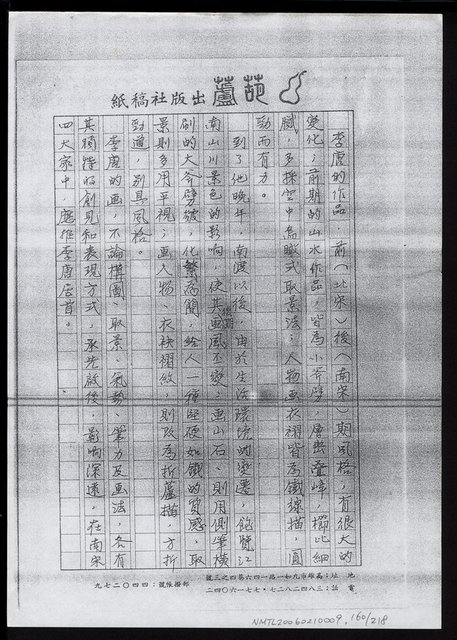 葫蘆出版社稿紙
李唐的作品，前（北宋）後（南宋）期風格，有很大的
變化；前期的山水作品，皆為小斧劈，層巒疊峰，櫛比細
膩，多採空中鳥瞰式取景法；人物画衣褶皆為鐵線描，圓
勁而有力。
到了他晚年，南渡以後，由於生活環境的變遷，飽覽江
南山川景色的影響，使其画風丕變；画山石、則用側筆橫
刷的大斧劈皴，化繁為簡，給人一種堅硬如鐵的質感，取
景則多用平視；画人物、衣袂褶紋，則改為折蘆描，方折
勁道，別具風格。
李唐的画，不論構圖、取景、氣勢、筆力及画法，各有
其獨特的創見和表現方式，承先啟後，影响深遠，在南宋
四大家中，應推李唐居首。
地址：高雄市九如一路一四六號之三號
電話：三八四二八二七・七七一六〇四二
郵撥帳號：四四〇二七九
NMTL20060210009, 160/218